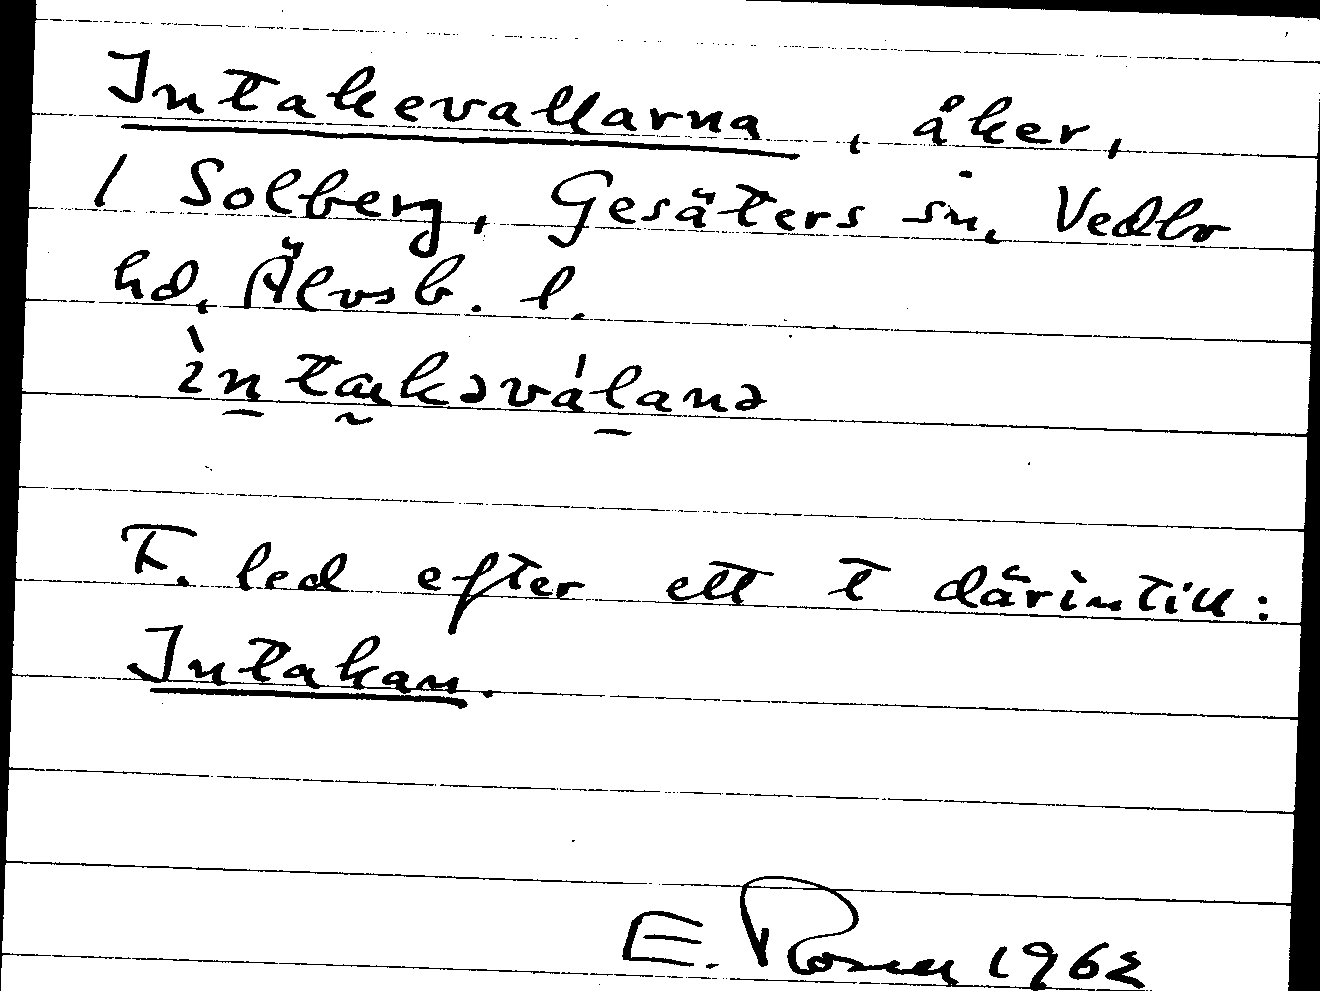 Intakevallarna, åker,
/ Solberg, Gesäters sn, Vedbo
hd, Älvsb. l.
ìntakəválanə
F. led efter ett t därintill:
Intakan.
E. Rosell 1962